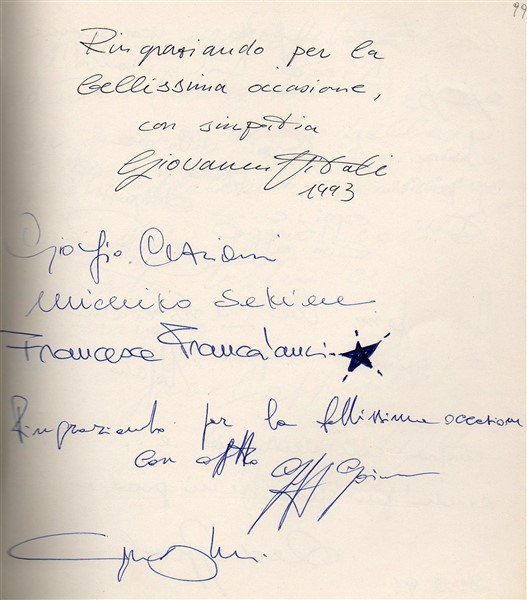 99
Ringraziando per la
bellissima occasione,
con simpatia
Giovanni Vitali
1993
Giorgio
Michiko Sekine
Francesca Francalanci
Ringraziando per la bellissima occasione
con affetto